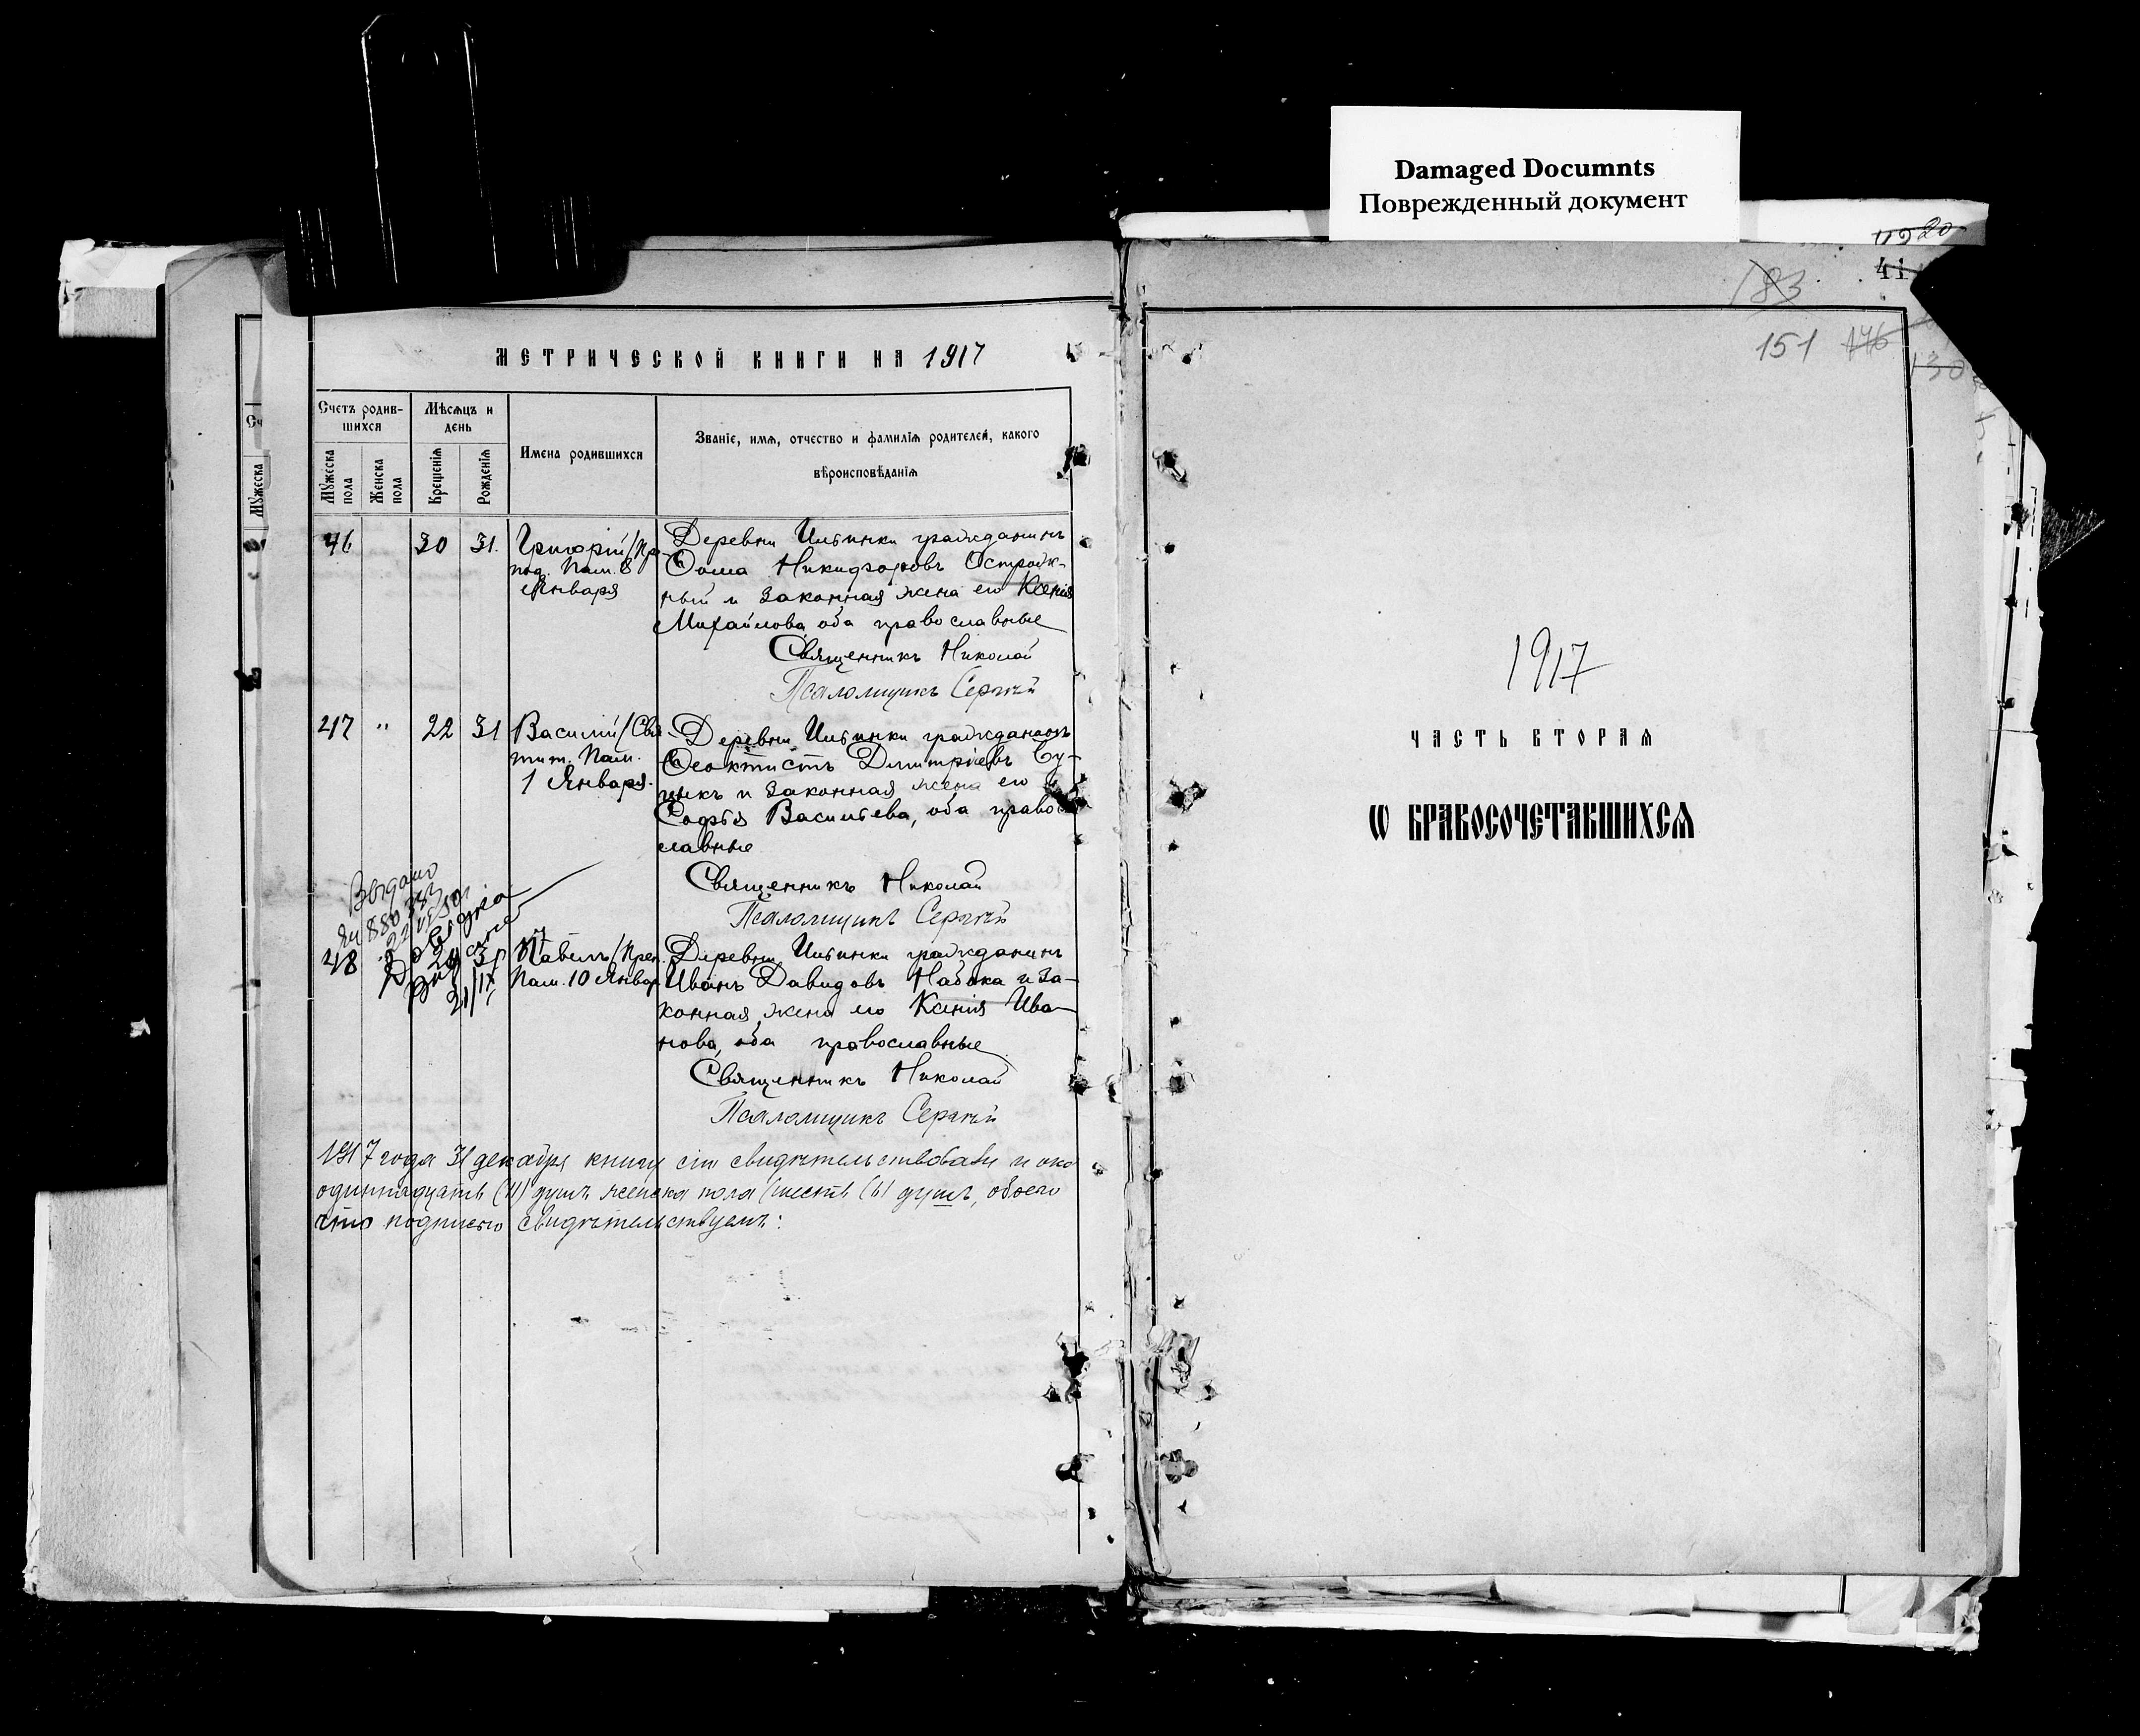 Damaged Documnts
Поврежденный документ
МЕТРИЧЕСКОЙ КНИГИ НА 1917
Счетъ родив-
шихся
Мѣсяцъ и
день
Имена родившихся
Званіе, имя, отчество и фамилія родителей, какого
вѣроисповѣданія
Мужеска
пола
Женска
пола
Крещенія
Рожденія
46 30 31. Григорій/Пре-
под. Пам. 8
Января
Деревни Ильинки гражданинъ
Ѳома Никифоровъ Остройж-
ный и законная жена его Ксенія
Михайлова, оба православные
Священникъ Николай
Псаломщикъ Сергій
47 " 22 31 Василій/Свя-
тит. Пам.
1 Января.
Деревни Ильинки гражданинъ
Ѳеоктистъ Димитріевъ Бу-
цыкъ и законная жена его
Софья Васильева, оба право-
славные
Священникъ Николай
Псаломщикъ Сергій
48 Павелъ/Преп.
Пам. 10 Январ.
Деревни Ильинки гражданинъ
Иванъ Давидовъ Набока и за-
конная жена его Ксенія Ива-
нова, оба православные
Священникъ Николай
Псаломщикъ Сергій
1917 года 31 декабря книгу сію свидѣтельствовали и ока
одиннадцать (11) душъ женска пола (шесть (6) душъ, обоего
что подписью свидѣтельствуемъ:
20
41
183
151 146
130
1917
ЧАСТЬ ВТОРАЯ
Ѡ БРАКОСОЧЕТАВШИХСЯ